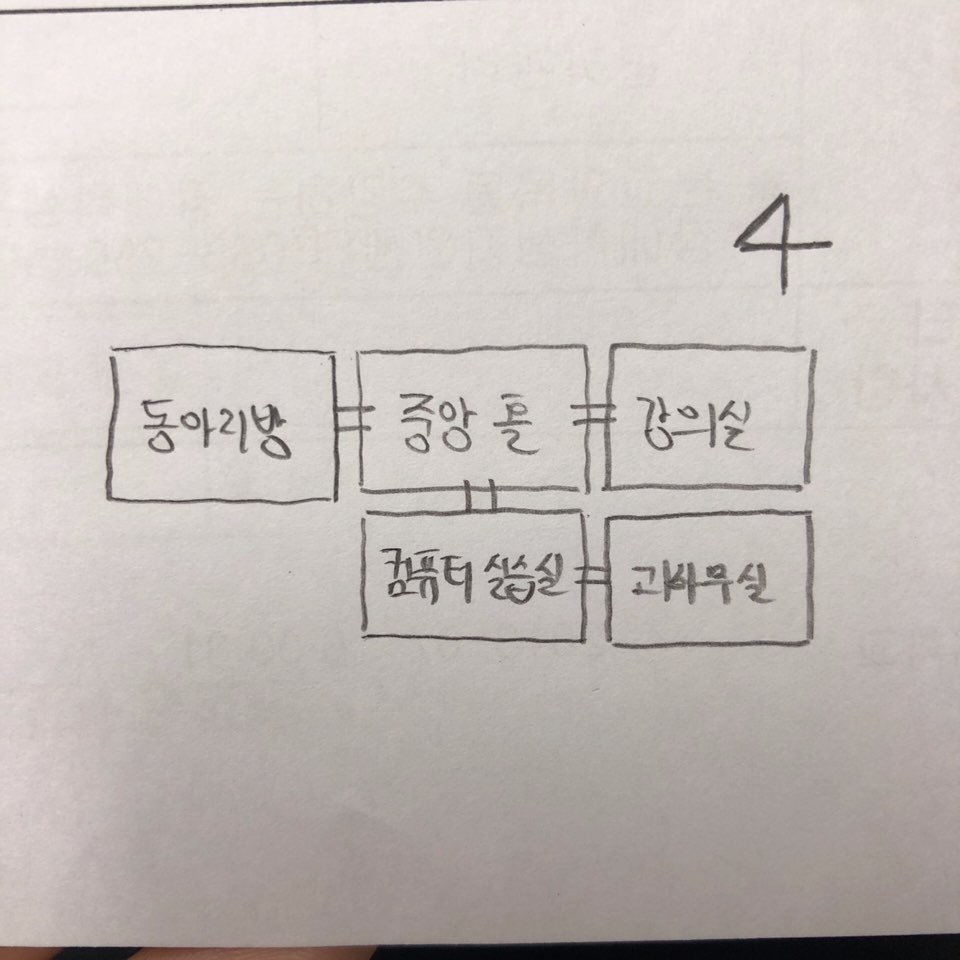 4
동아리방 중앙 홀 강의실
컴퓨터 실습실 과사무실